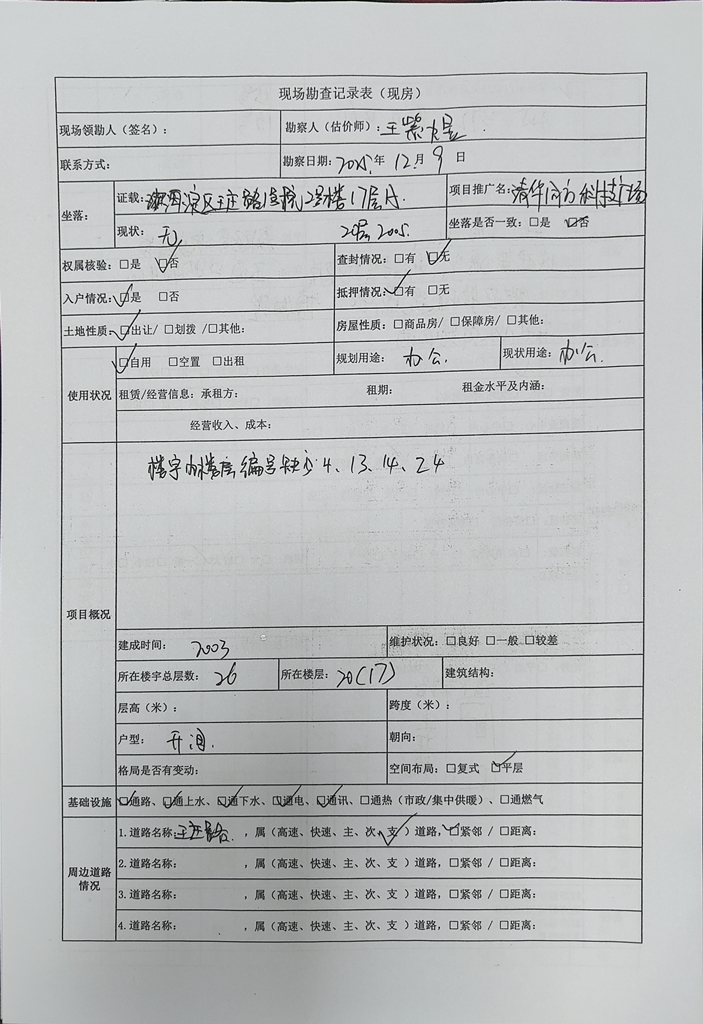 现场勘查记录表（现房）
现场领勘人（签名）： 勘察人（估价师）：王紫
联系方式： 勘察日期：2025年 12月 9 日
坐落： 证载：海淀区王庄路1号院2号楼17层 项目推广名：清华同方科技广场
现状：无 20层2005. 坐落是否一致：□是 ☑否
权属核验：□是 ☑否 查封情况：□有 ☑无
入户情况：☑是 □否 抵押情况：☑有 □无
土地性质：☑出让/ □划拨 /□其他： 房屋性质：□商品房/ □保障房/ □其他：
使用状况 ☑自用 □空置 □出租 规划用途：办公. 现状用途：办公.
租赁/经营信息：承租方： 租期： 租金水平及内涵：
经营收入、成本：
项目概况 楼宇内楼层编号缺少4、13、14、24
建成时间：2003 维护状况：□良好 □一般 □较差
所在楼宇总层数：26 所在楼层：20(17) 建筑结构：
层高（米）： 跨度（米）：
户型：开间. 朝向：
格局是否有变动： 空间布局：□复式 ☑平层
基础设施 ☑通路、☑通上水、☑通下水、☑通电、☑通讯、□通热（市政/集中供暖）、□通燃气
周边道路情况 1.道路名称：王庄路，属（高速、快速、主、次、支✓）道路，☑紧邻 / □距离：
2.道路名称： ，属（高速、快速、主、次、支 ）道路，□紧邻 / □距离：
3.道路名称： ，属（高速、快速、主、次、支 ）道路，□紧邻 / □距离：
4.道路名称： ，属（高速、快速、主、次、支 ）道路，□紧邻 / □距离：